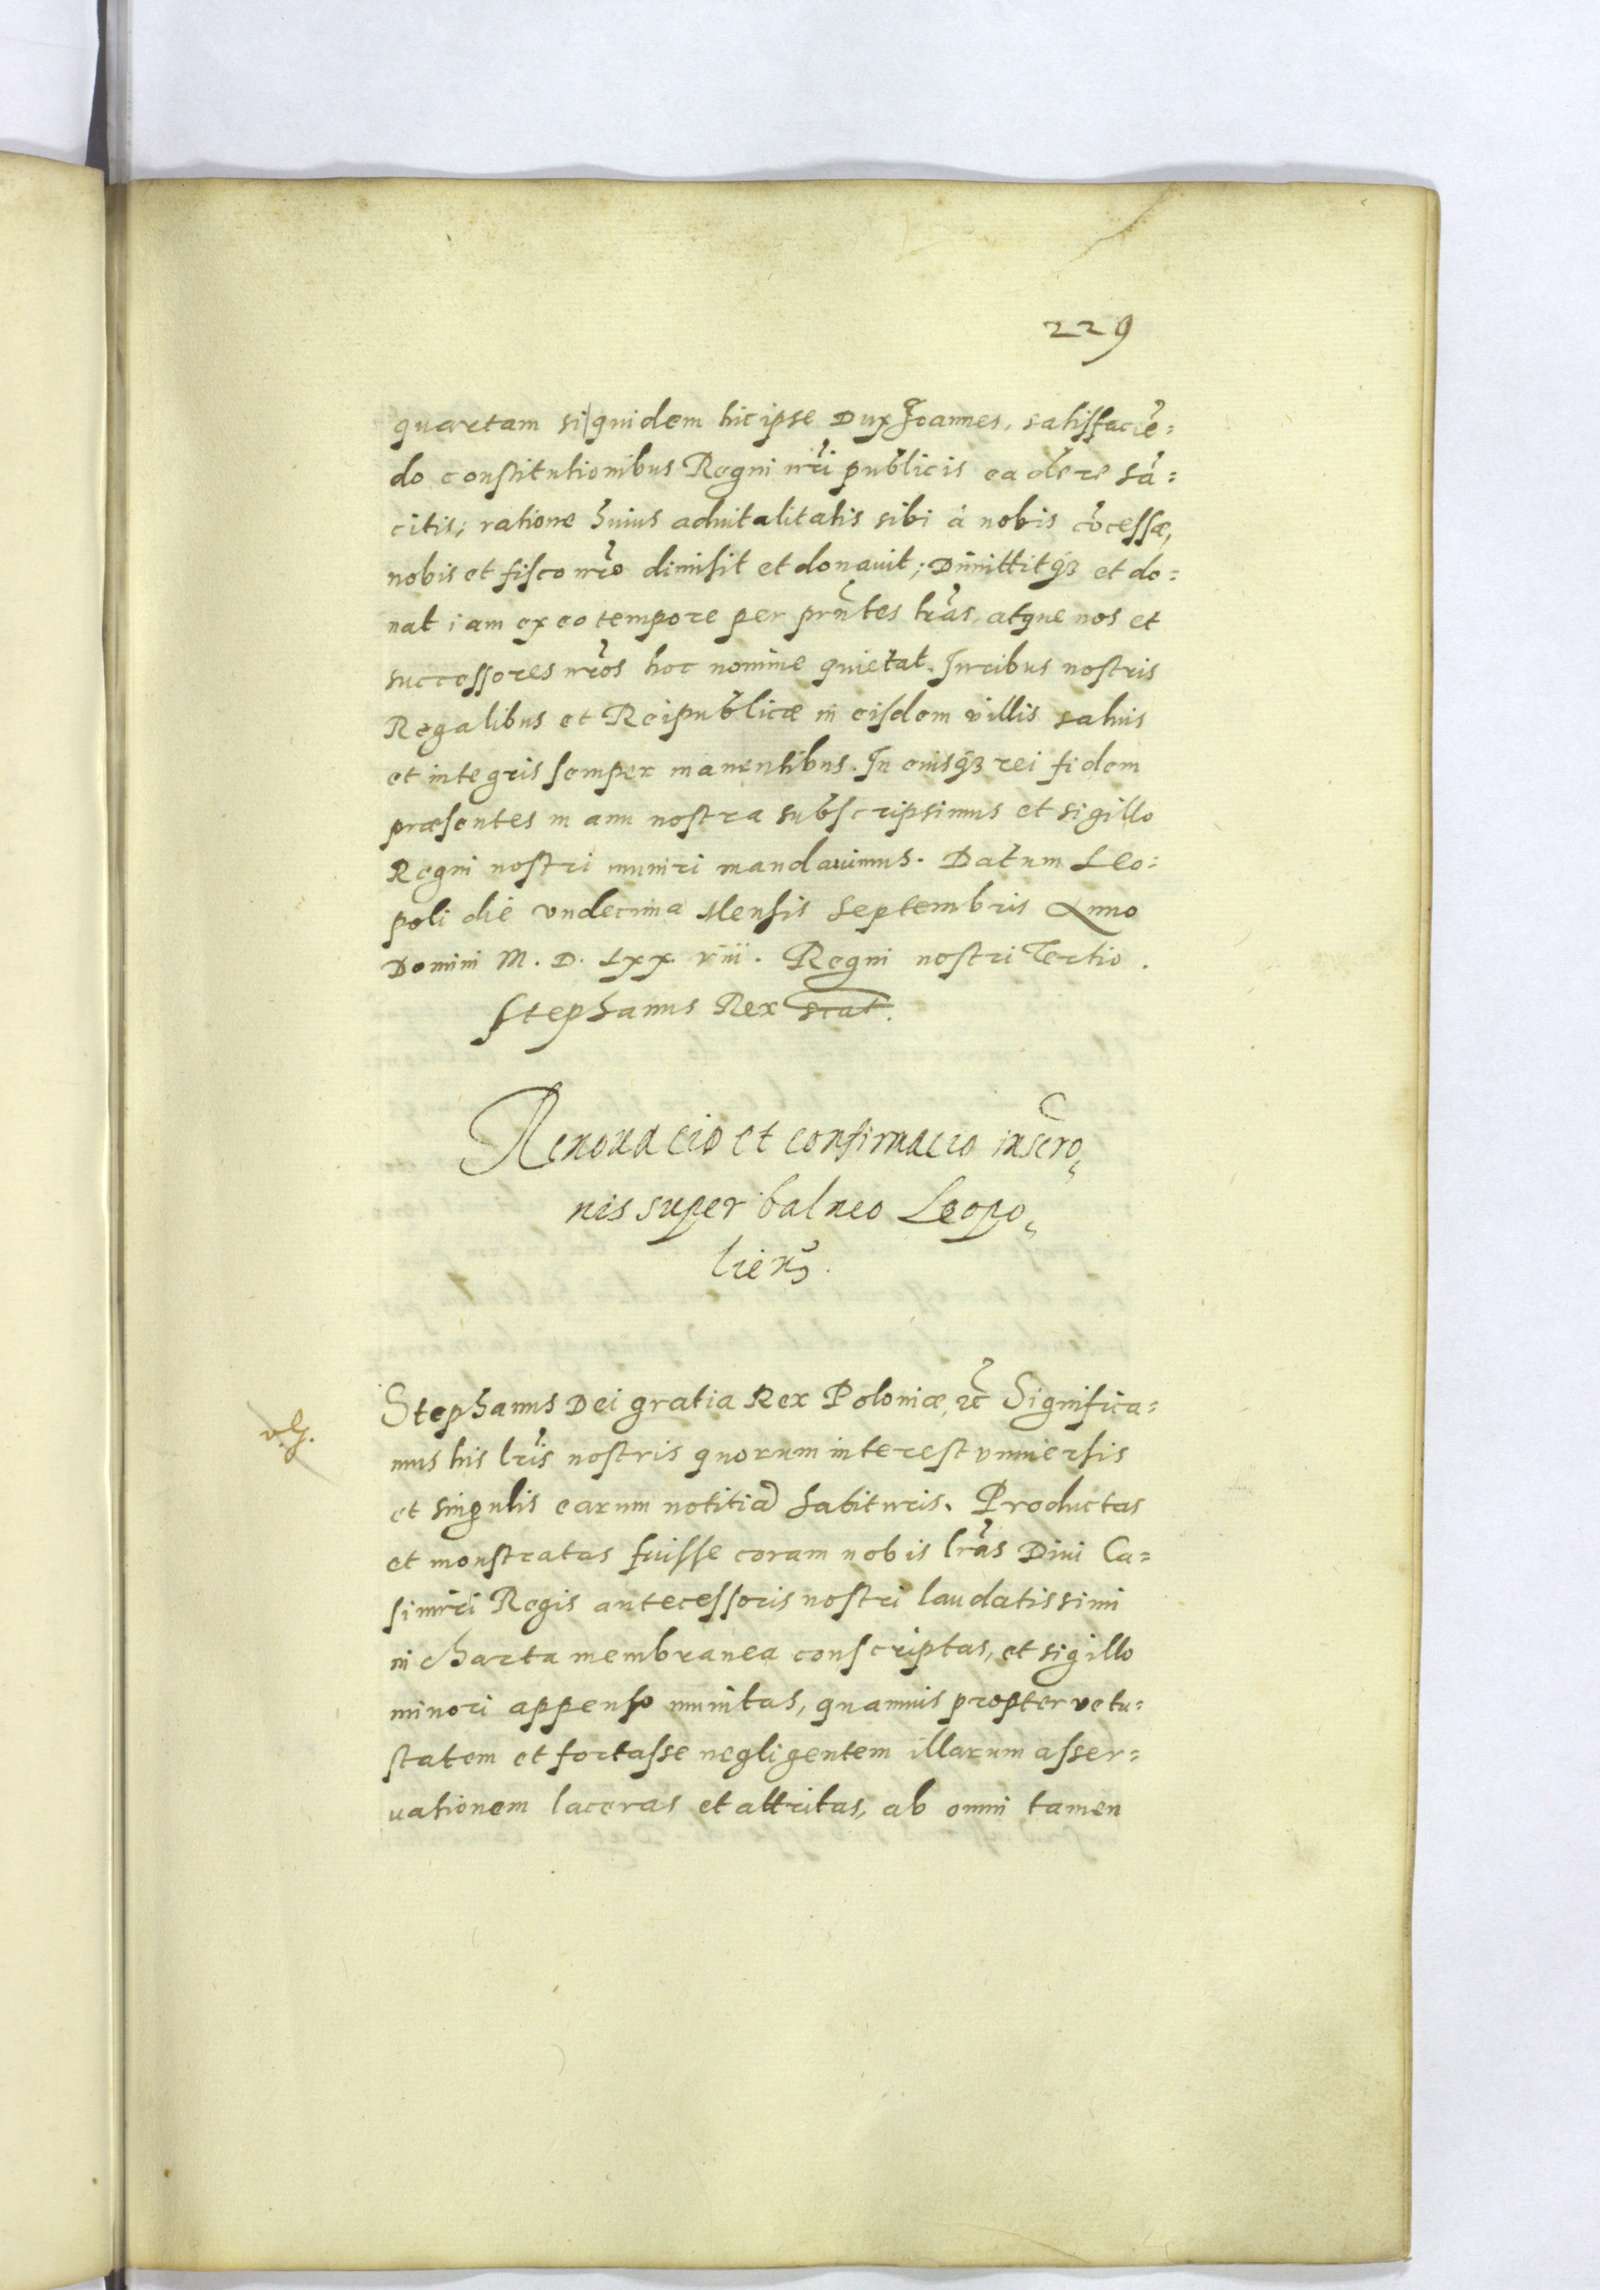 229
quartam si quidem hic ipse Dux Joannes, satisfaciē=
do constitutionibus Regni nr̃i publicis ea de re sā=
citis; ratione huius aduitalitatis sibi à nobis cōcessæ,
nobis et fisco nr̃o dimisit et donauit; Dimittitq̃ et do=
nat iam ex eo tempore per prñtes lr̃as, atque nos et
successores nr̃os hoc nomine quietat. Juribus nostris
Regalibus et Reipublicæ in eisdem villis saluis
et integris semper manentibus. In cuius q̃ rei fidem
præsentes manu nostra subscripsimus et sigillo
Regni nostri muniri mandauimus. Datum Leo=
poli die vndecima Mensis Septembris Anno
Domini M. D. Lxx viii. Regni nostri Tertio.
Stephanus Rex scat.
Renouacio et confirmacio inscr̃o,
nis super balneo Leopo,
lien̄.
Stephanus Dei gratia Rex Poloniæ, ꝛc̃ Significa=
mus his lr̃is nostris quorum interest vniuersis
et singulis earum notitiā habituris. Productas
et monstratas fuisse coram nobis lr̃as Diui Ca=
simiri Regis antecessoris nostri laudatissimi
in charta membranea conscriptas, et sigillo
minori appenso munitas, quamuis propter vetu=
statem et fortasse negligentem illarum asser=
uationem laceras et attritas, ab omni tamen